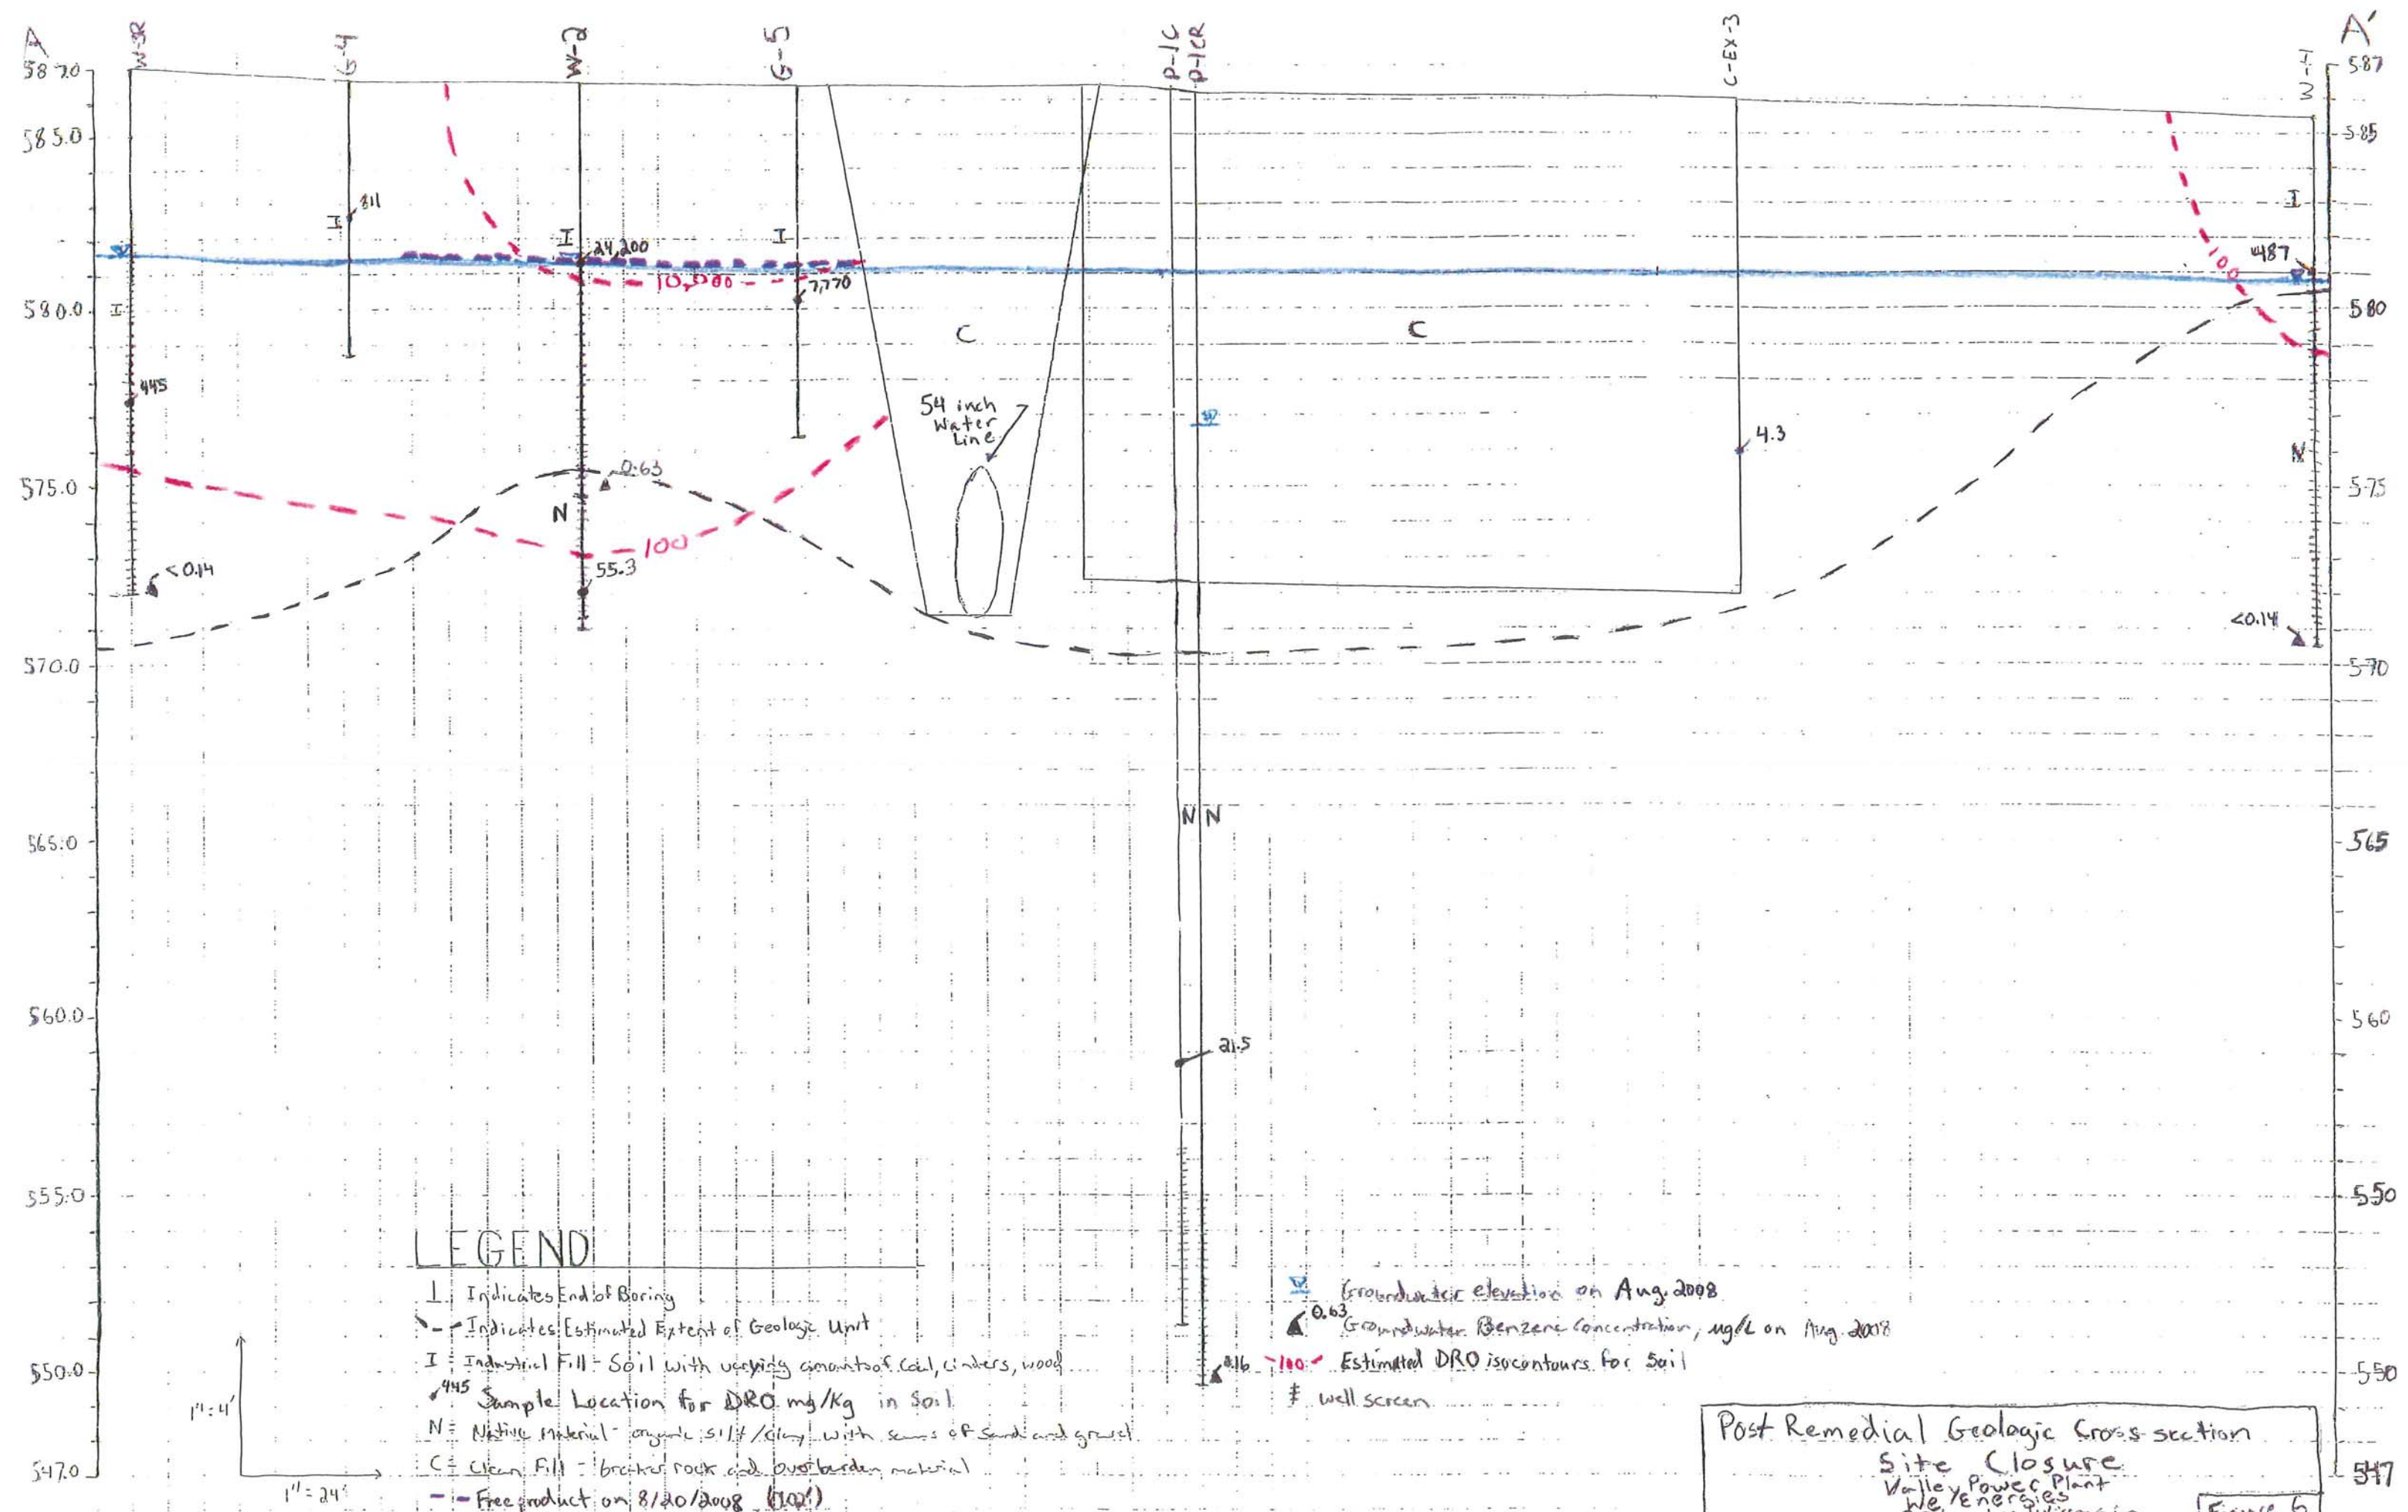 A
W-3R
G-4
W-2
G-5
P-1C
P-1CR
C-EX-3
W-4
A'
587.0
585.0
580.0
575.0
570.0
565.0
560.0
555.0
550.0
547.0
587
585
580
575
570
565
560
550
550
547
I
811
I
24,200
I
10,000
7,770
I
445
<0.14
0.63
N
100
55.3
C
54 inch
Water
Line
C
4.3
I
100
487
N
<0.14
N N
21.5
0.16
LEGEND
Indicates End of Boring
Indicates Estimated Extent of Geologic Unit
I = Industrial Fill - Soil with varying amounts of Coal, cinders, wood
445 Sample Location for DRO mg/Kg in Soil
N = Native Material - organic silt/clay with seams of sand and gravel
C = Clean Fill - broken rock and overburden material
Free product on 8/20/2008 (.02')
Groundwater elevation on Aug. 2008
0.63 Groundwater Benzene Concentration, ug/L on Aug. 2008
-100- Estimated DRO isocontours for Soil
well screen
1" = 4'
1" = 24'
Post Remedial Geologic Cross-section
Site Closure
Valley Power Plant
We Energies
Figure 6